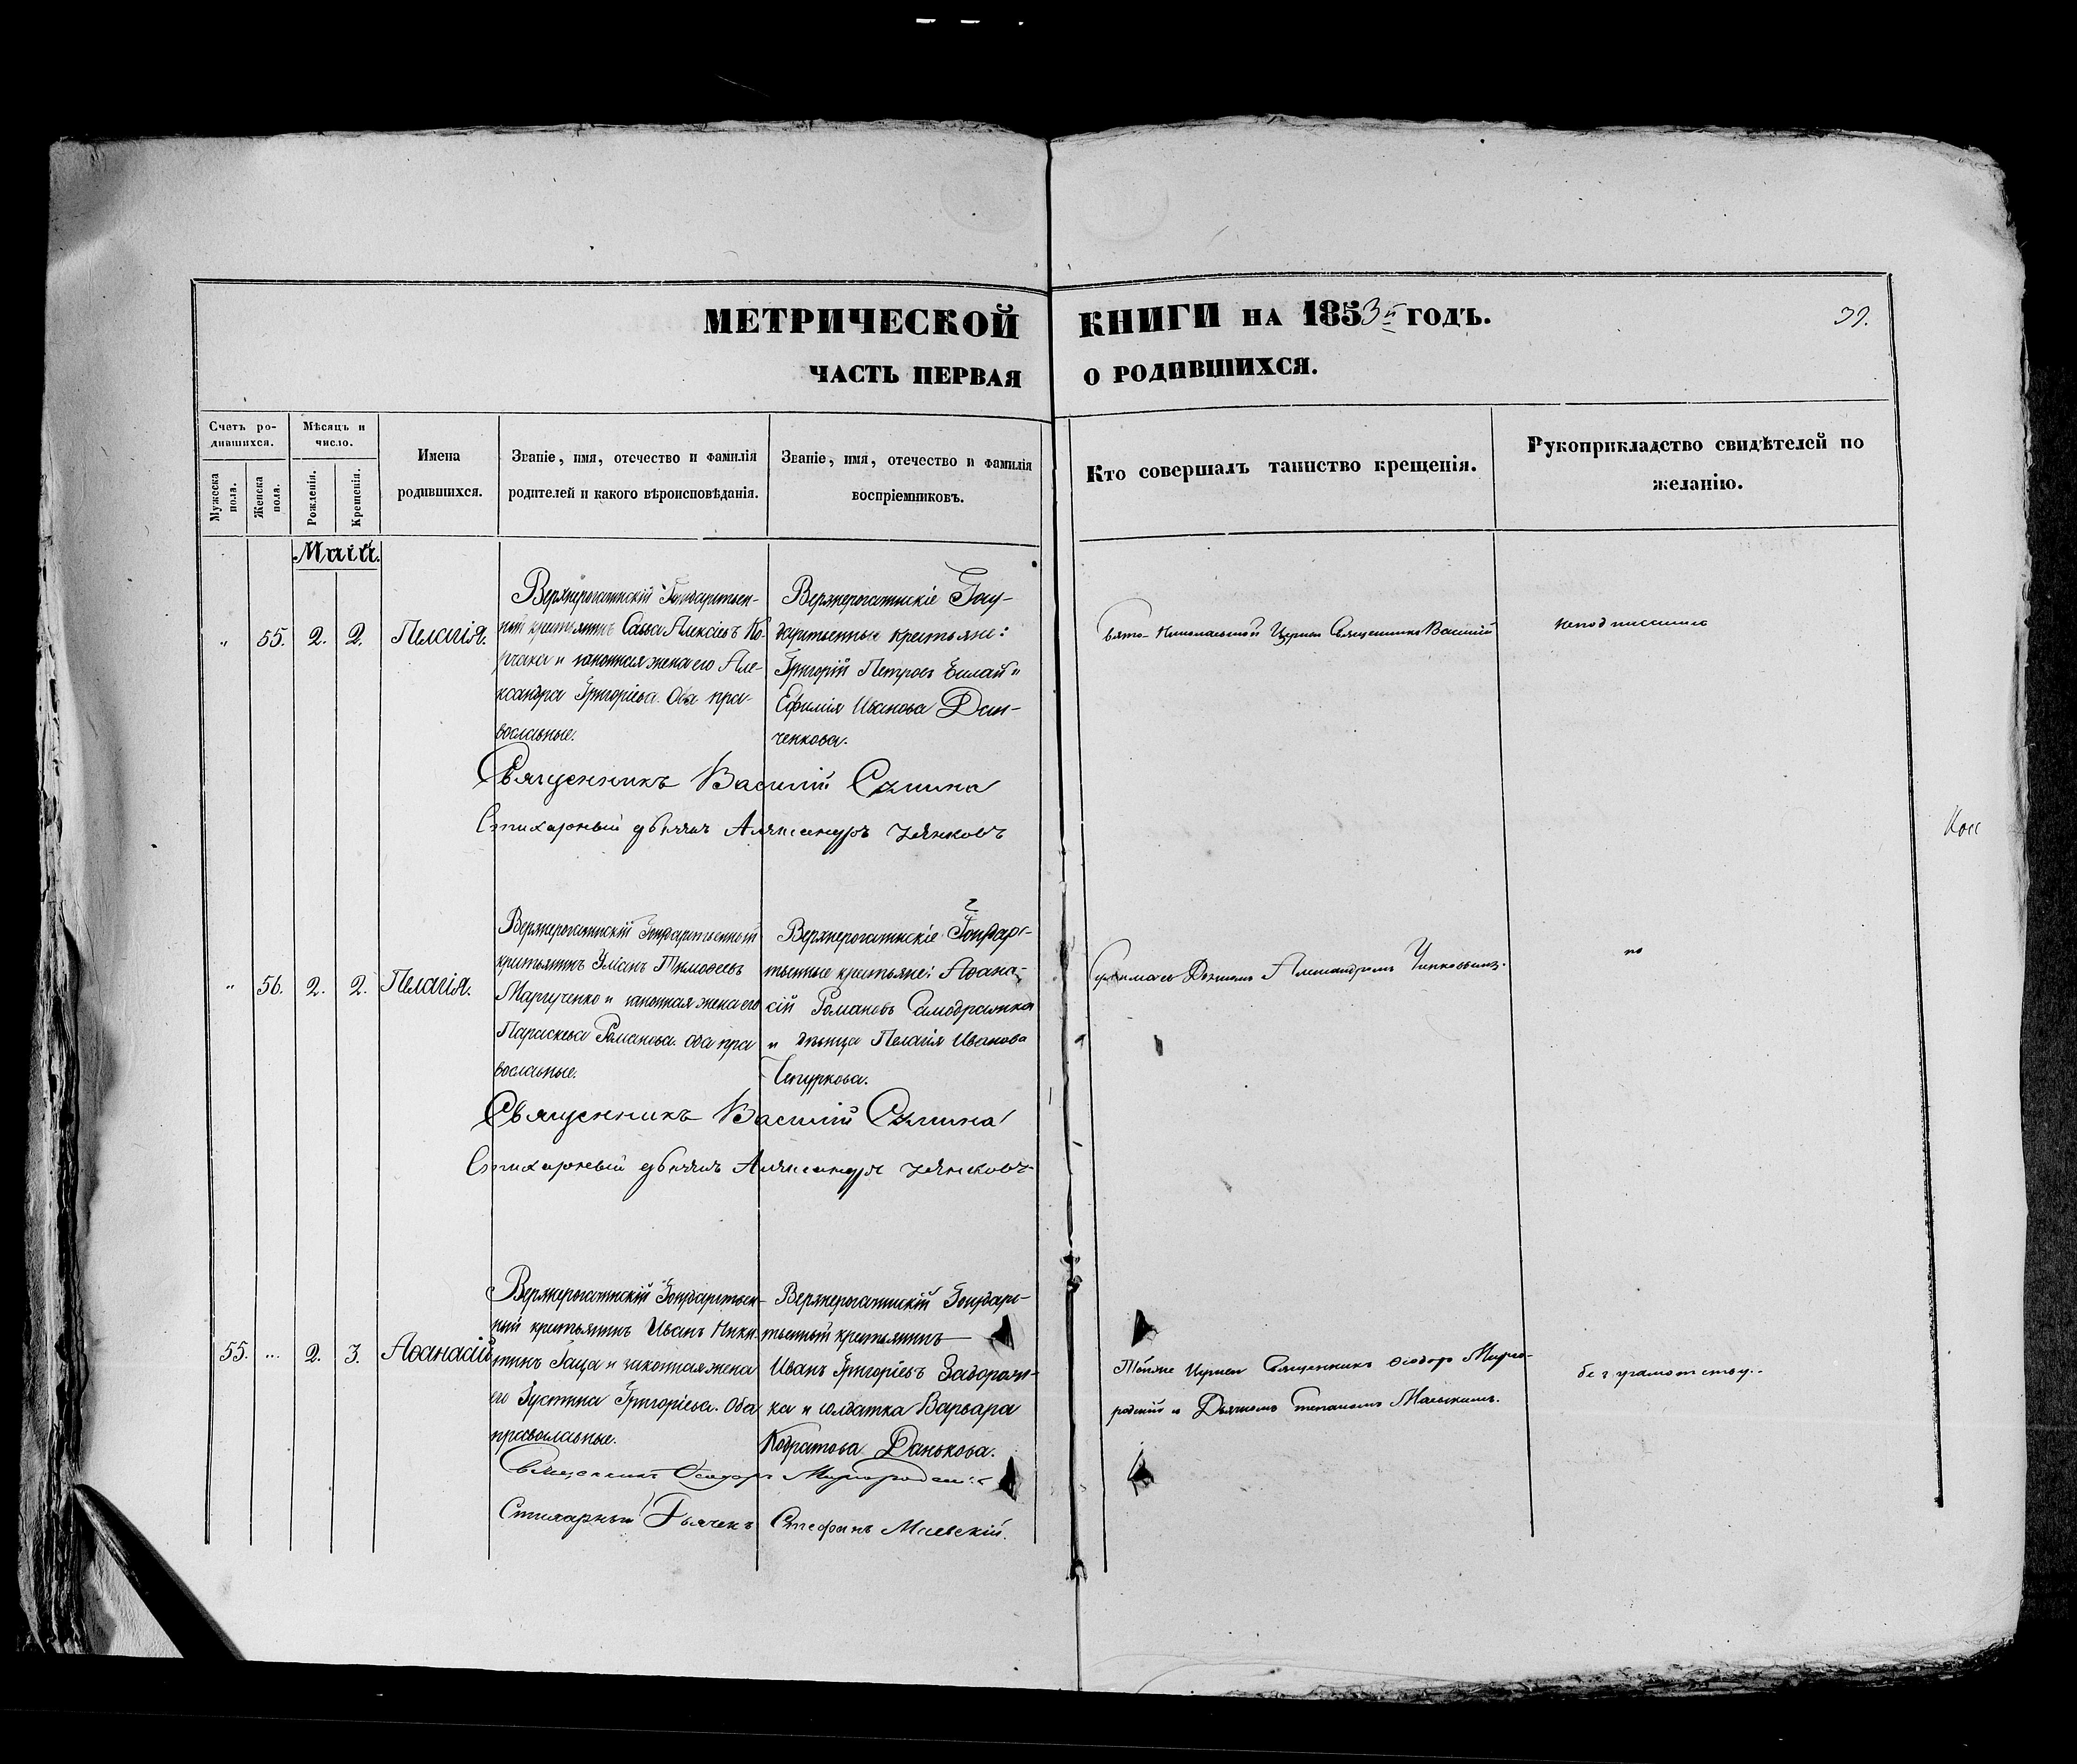 МЕТРИЧЕСКОЙ КНИГИ НА 1853й ГОДЪ.
39.
ЧАСТЬ ПЕРВАЯ О РОДИВШИХСЯ.
Счетъ ро-
дившихся.
Мужеска пола.
Женска пола.
Мѣсяцъ и
число.
Рожденія.
Крещенія.
Имена
родившихся.
Званіе, имя, отечество и фамилія
родителей и какого вѣроисповѣданія.
Званіе, имя, отечество и фамилія
воспріемниковъ.
Кто совершалъ таинство крещенія.
Рукоприкладство свидѣтелей по
желанію.
Маій.
" 55. 2. 2. Пелагія.
Верхнерогатинскій Государствен-
ный крестьянинъ Савва Алексіевъ Ко-
и законная жена его Але-
ксандра Григоріева. Оба пра-
вославные.
Верхнерогатинскіе Госу-
дарственные крестьяне:
Григорій Петровъ Билай и
Ефимія Иванова Дан-
ченкова.
Свято-Николаевской Церкви Священникъ Василій
Священникъ Василій
Стихарный дьячекъ Александръ
" 56. 2. 2. Пелагія.
Верхнерогатинскій Государственный
крестьянинъ Тимофеевъ
и законная жена его
Параскева Романова. Оба пра
вославные.
Верхнерогатинскіе Государ-
ственные крестьяне: Афана-
сій Романовъ
и дѣвица Пелагія Иванова
Чепуркова.
Дьячкомъ Александромъ
по
Священникъ Василій
Стихарный дьячекъ Александръ
55. " 2. 3. Афанасій
Верхнерогатинскій Государствен-
ный крестьянинъ Иванъ Ники-
тинъ Гаца и законная жена
его Іустина Григоріева. Оба
православные.
Верхнерогатинскій Государс-
твенный крестьянинъ
Иванъ Григоріевъ Задорож-
ка и солдатка Варвара
Кодратова Данькова.
Тойже Церкви Священникъ Ѳеодоръ Мирго-
родскій и Дьячкомъ Степаномъ Маевскимъ.
безграмотству.
Священникъ Ѳеодоръ
Стихарный Дьячекъ Стефанъ Маевскій.